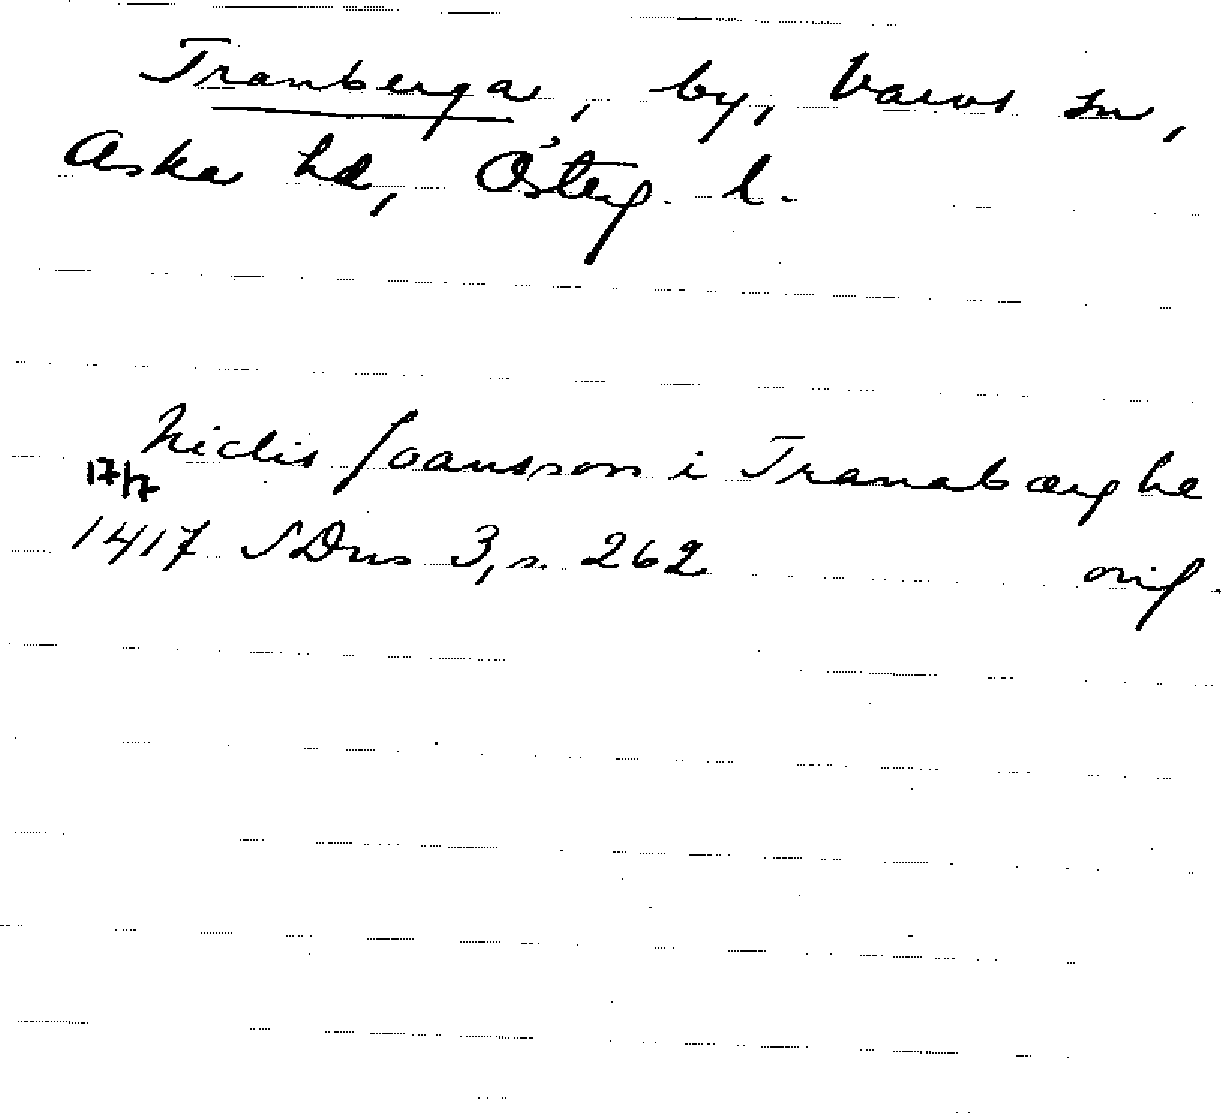 Tranberga, by, Varvs sn,
Aska hd, Österg. l.
Niclis Joansson i Tranabærghe
17/7
1417 SDns 3, s. 262 orig.